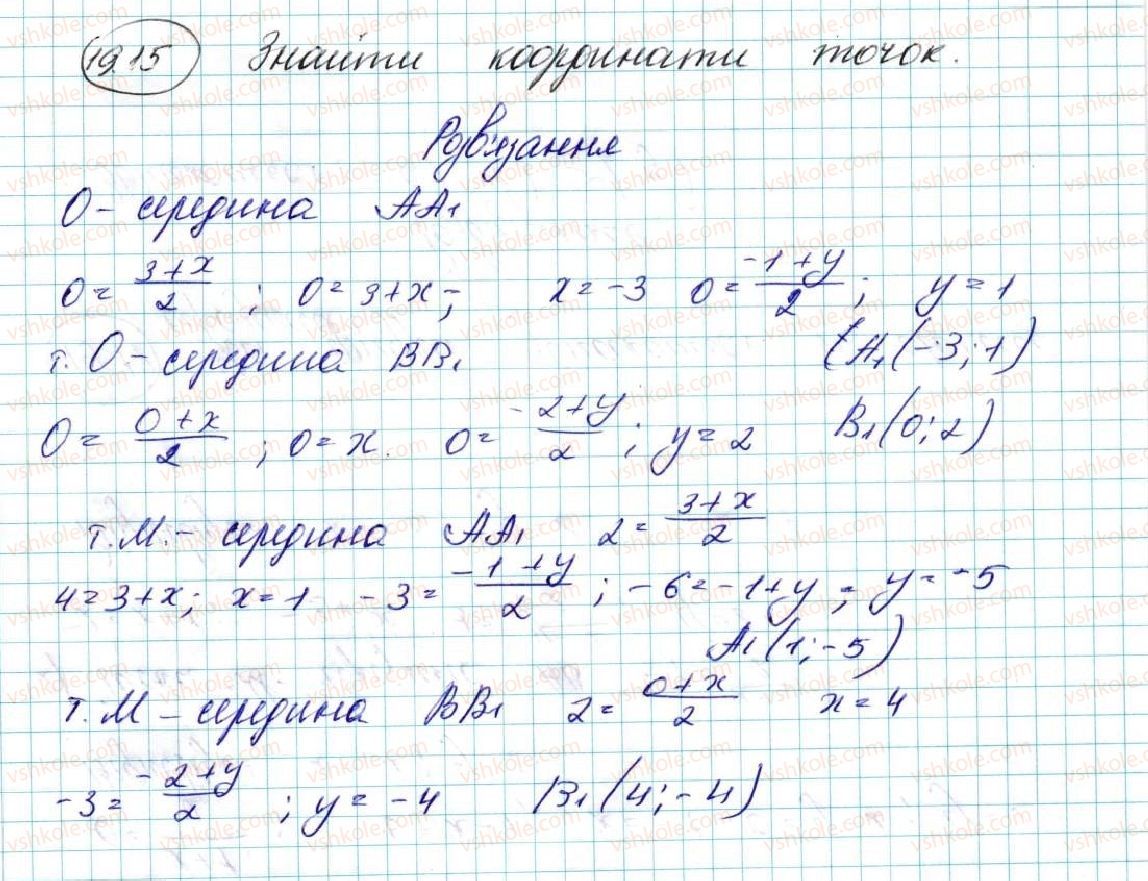 19.15 Знайти координати точок.
Розв'язання
О - середина AA₁
0 = (3+x)/2 ; 0 = 3+x ; x = -3 0 = (-1+y)/2 ; y = 1
т. О. - середина BB₁ (A₁(-3; 1)
0 = (0+x)/2 ; 0 = x. 0 = (-2+y)/2 ; y = 2 B₁(0; 2)
т. М. - середина AA₁ 2 = (3+x)/2
4 = 3+x; x = 1. -3 = (-1+y)/2 ; -6 = -1+y ; y = -5
A₁(1; -5)
т. М - середина BB₁ 2 = (0+x)/2 x = 4
-3 = (-2+y)/2 ; y = -4 B₁(4; -4)